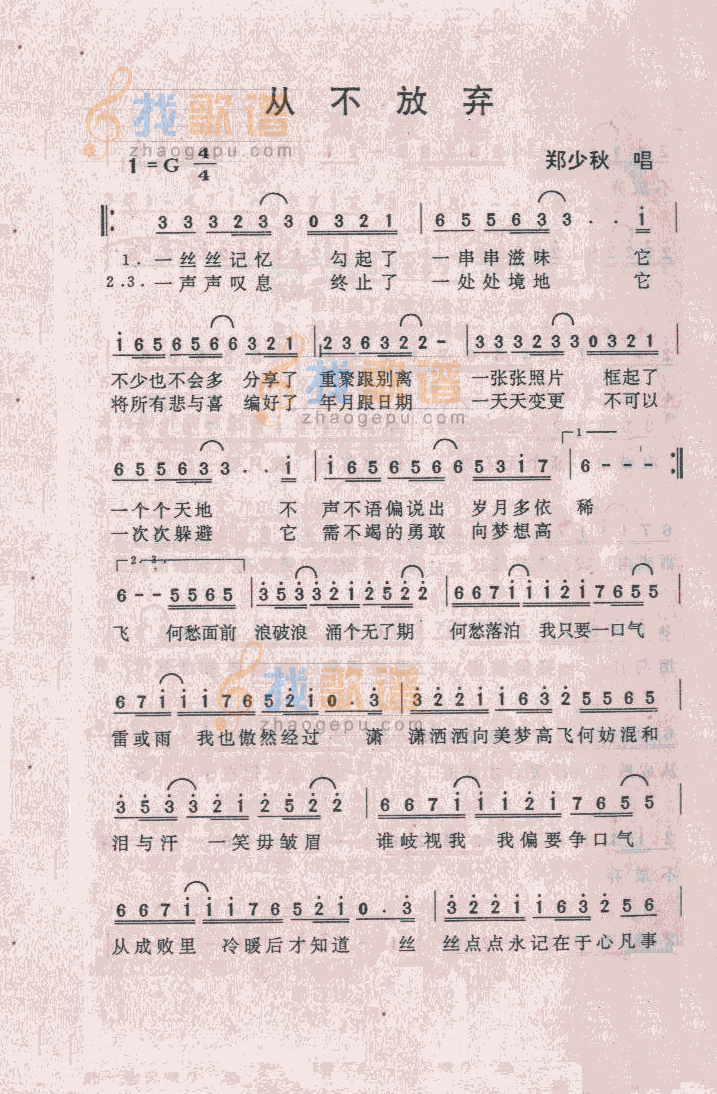 从不放弃
找歌谱
zhaogepu.com
1=G 4/4
郑少秋 唱
3 3 3 2 3 3 0 3 2 1 | 6 5 5 6 3 3 · · i |
1.一丝丝记忆 勾起了 一串串滋味 它
2.3.一声声叹息 终止了 一处处境地 它
i 6 5 6 5 6 6 3 2 1 | 2 3 6 3 2 2 - | 3 3 3 2 3 3 0 3 2 1 |
不少也不会多 分享了 重聚跟别离 一张张照片 框起了
将所有悲与喜 编好了 年月跟日期 一天天变更 不可以
找歌谱
zhaogepu.com
6 5 5 6 3 3 · · i | i 6 5 6 5 6 6 5 3 i 7 | 6 - - :|
1
一个个天地 不 声不语偏说出 岁月多依 稀
一次次躲避 它 需不竭的勇敢 向梦想高
2.3.
6 - - 5 5 6 5 | 3 5 3 3 2 1 2 5 2 2 | 6 6 7 i i i 2 i 7 6 5 5
飞 何愁面前 浪破浪 涌个无了期 何愁落泊 我只要一口气
找歌谱
zhaogepu.com
6 7 i i i 7 6 5 2 i 0 · 3 | 3 2 2 i i 6 3 2 5 5 6 5 |
雷或雨 我也傲然经过 潇 潇洒洒向美梦高飞何妨混和
3 5 3 3 2 i 2 5 2 2 | 6 6 7 i i i 2 i 7 6 5 5 |
泪与汗 一笑毋皱眉 谁歧视我 我偏要争口气
6 6 7 i i i 7 6 5 2 i 0 · 3 | 3 2 2 i i 6 3 2 5 6 |
从成败里 冷暖后才知道 丝 丝点点永记在于心凡事